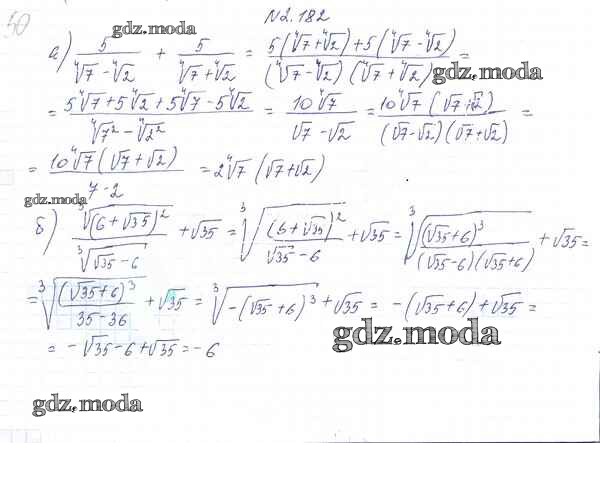 50
№2.182
gdz.moda
а) 5/(⁴√7 - ⁴√2) + 5/(⁴√7 + ⁴√2) = (5(⁴√7 + ⁴√2) + 5(⁴√7 - ⁴√2))/((⁴√7 - ⁴√2)(⁴√7 + ⁴√2)) =
gdz.moda
= (5⁴√7 + 5⁴√2 + 5⁴√7 - 5⁴√2)/(⁴√7² - ⁴√2²) = 10⁴√7/(√7 - √2) = 10⁴√7(√7 + √2)/((√7 - √2)(√7 + √2)) =
= 10⁴√7(√7 + √2)/(7 - 2) = 2⁴√7(√7 + √2)
gdz.moda
б) ³√(6 + √35)²/³√(√35 - 6) + √35 = ³√((6 + √35)²/(√35 - 6)) + √35 = ³√((√35 + 6)³/((√35 - 6)(√35 + 6))) + √35 =
= ³√((√35 + 6)³/(35 - 36)) + √35 = ³√(-(√35 + 6)³) + √35 = -(√35 + 6) + √35 =
gdz.moda
= -√35 - 6 + √35 = -6
gdz.moda